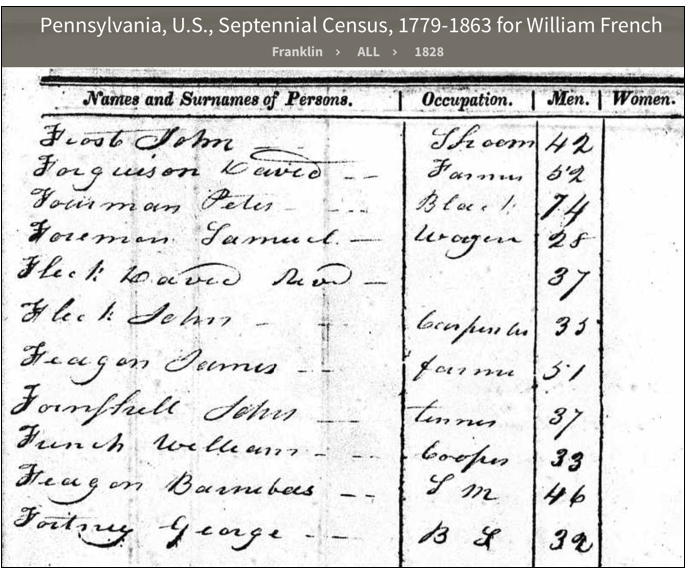 Pennsylvania, U.S., Septennial Census, 1779-1863 for William French
Franklin › ALL › 1828
Names and Surnames of Persons. Occupation. Men. Women.
Frost John Shoem 42
Forguison David -- Farmer 52
Fourman Peter - -- Black 74
Foreman Samuel - Wagon 28
Fleck David - 37
Fleck John - - Carpenter 35
Feagan James -- farmer 51
John -- tanner 37
French William - -- Cooper 33
Feagon Barnibas -- S M 46
Fortney George -- B S 32